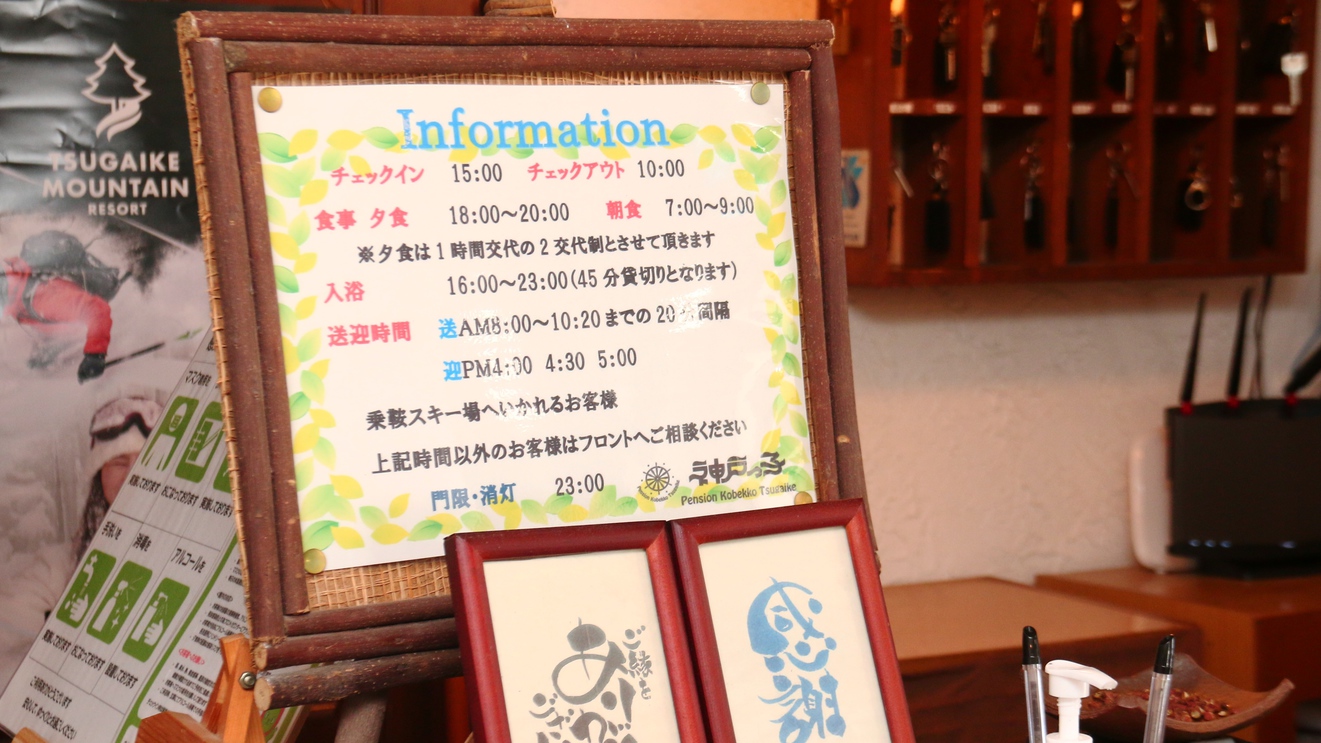 TSUGAIKE
MOUNTAIN
RESORT
Information
チェックイン 15:00 チェックアウト 10:00
食事 夕食 18:00～20:00 朝食 7:00～9:00
※夕食は1時間交代の2交代制とさせて頂きます
入浴 16:00～23:00(45分貸切りとなります)
送迎時間 送AM8:00～10:20までの20分間隔
迎PM4:00 4:30 5:00
乗鞍スキー場へいかれるお客様
上記時間以外のお客様はフロントへご相談ください
門限・消灯 23:00
神戸っ子
Pension Kobekko Tsugaike
手洗いを 消毒を アルコールを
実施しております おこなっております 設置しております
ご縁を
感謝